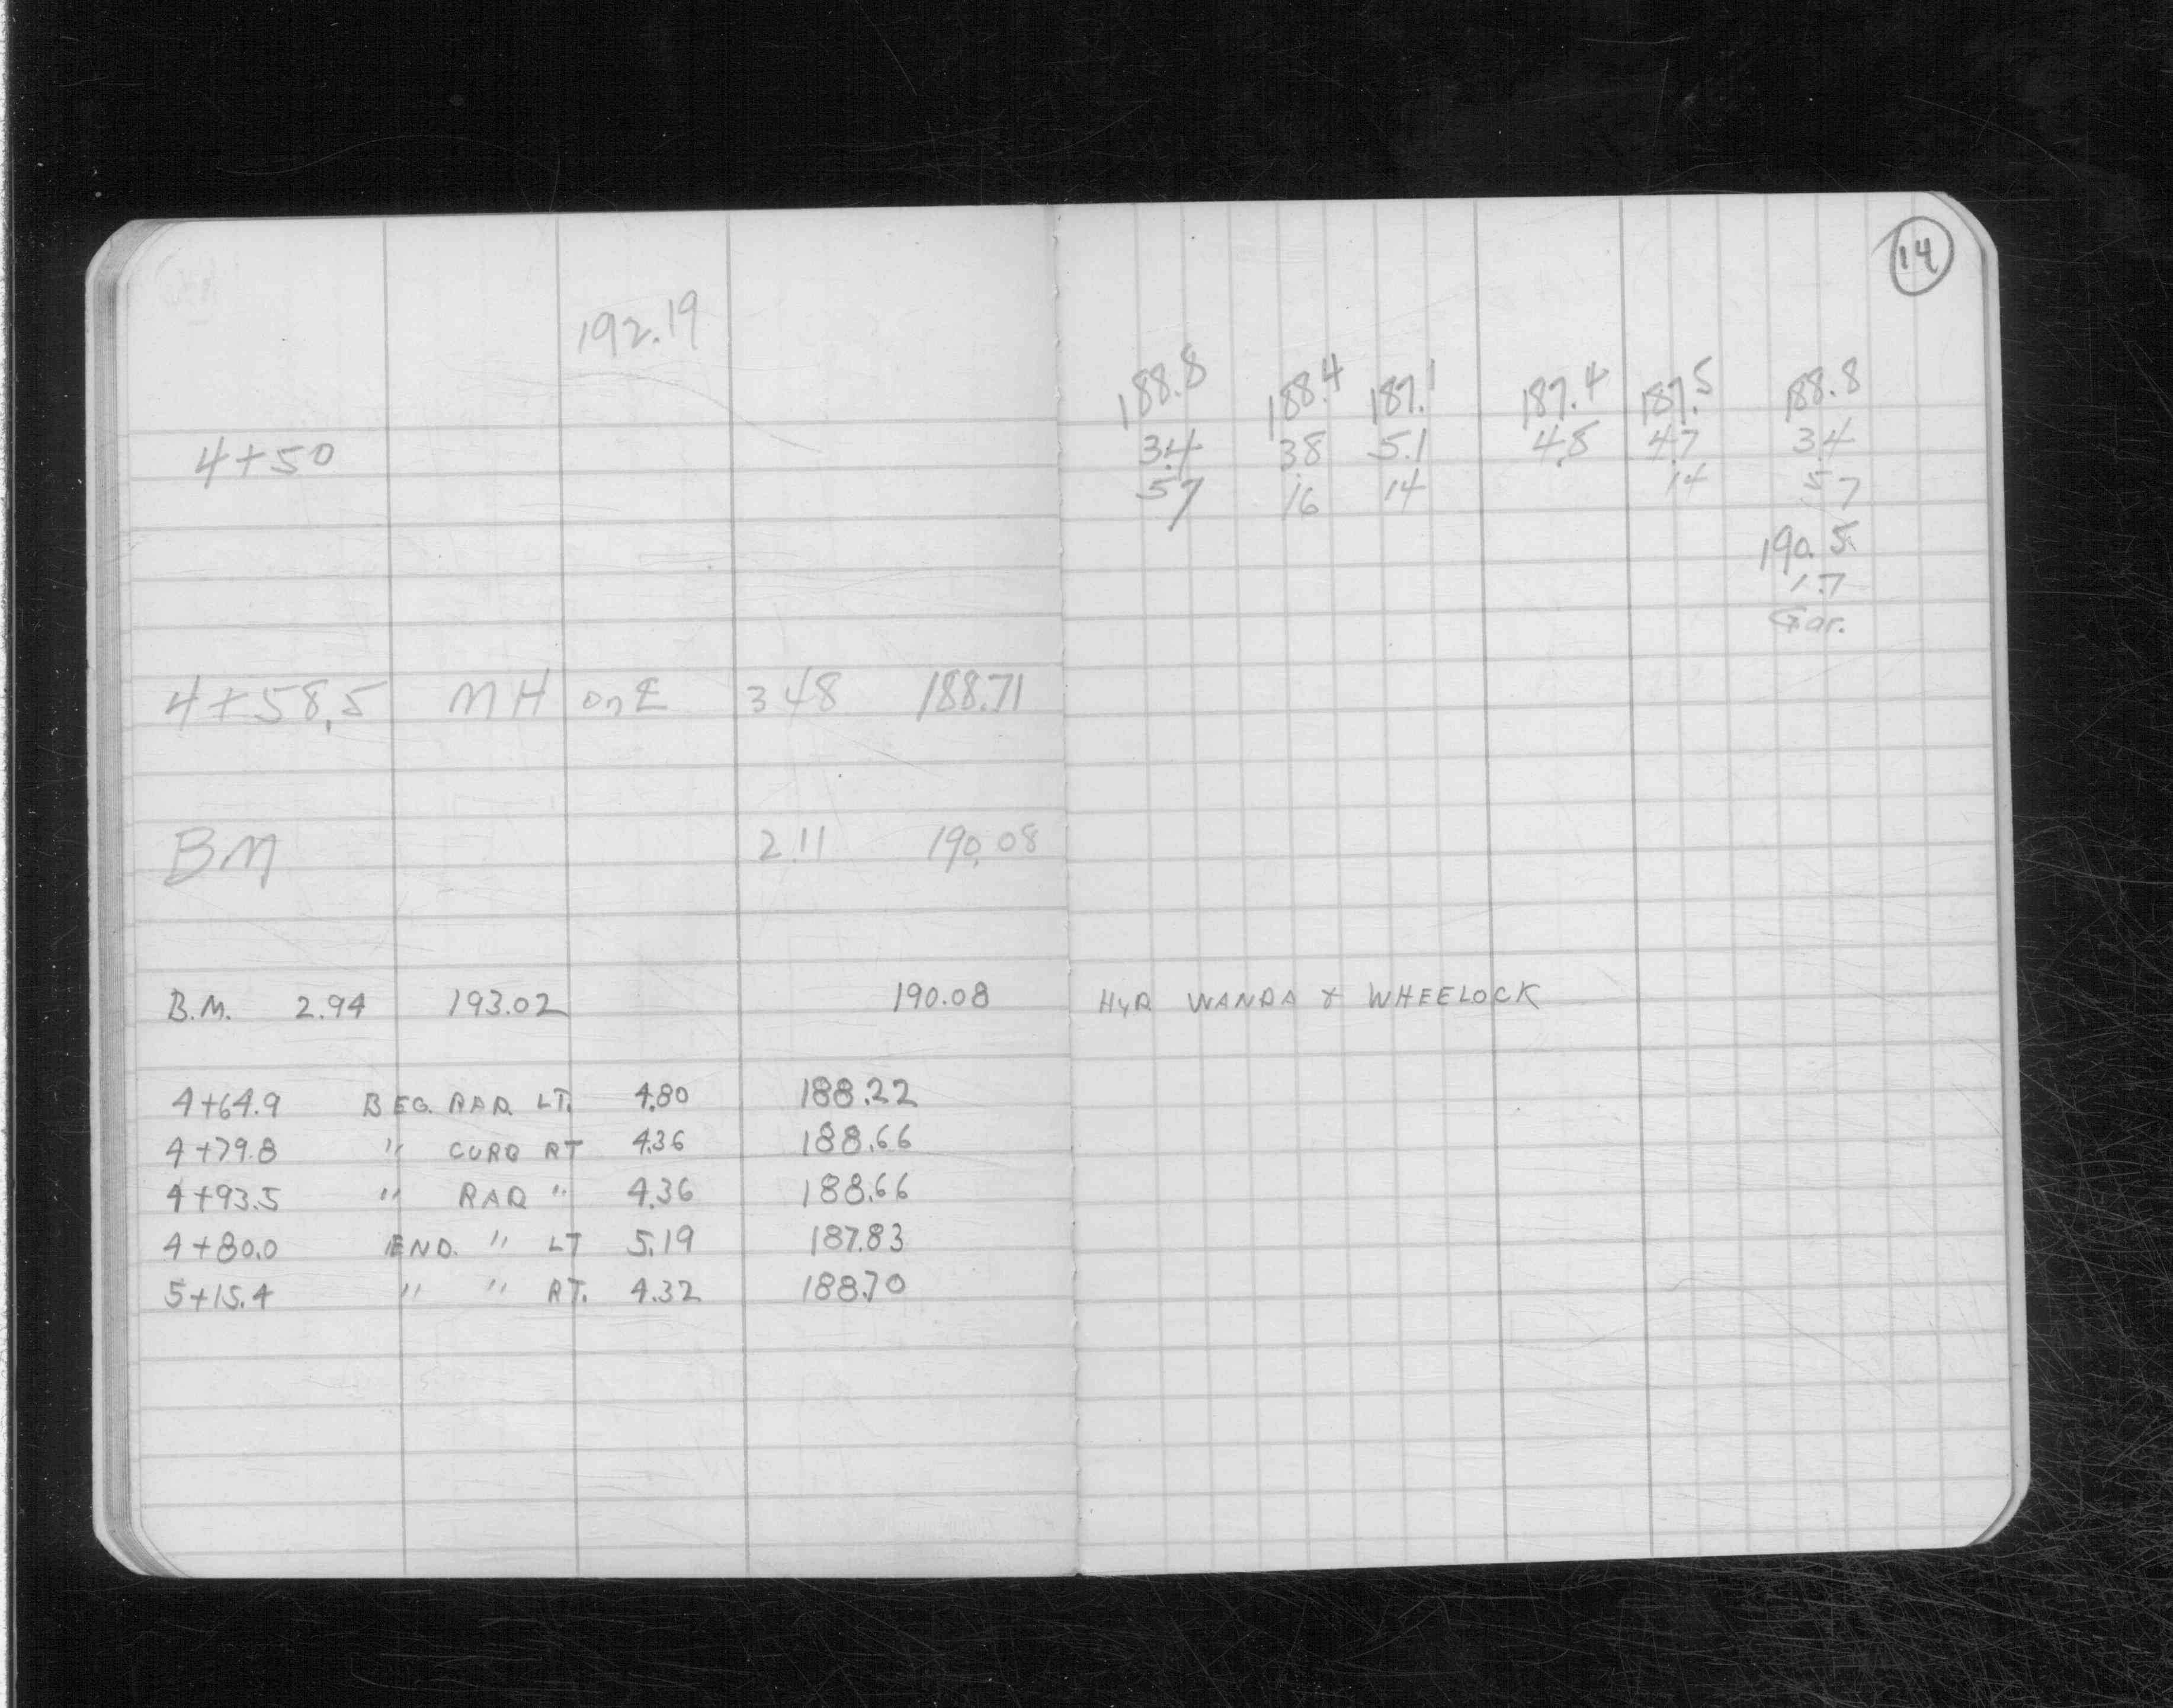 14
192.19
188.8 188.4 187.1 187.4 187.5 188.8
4+50 3.4 3.8 5.1 4.8 4.7 3.4
57 16 14 14 57
190.5
1.7
Gar.
4+58.5 MH on ℄ 3.48 188.71
BM 2.11 190.08
B.M. 2.94 193.02 190.08 HYD WANDA & WHEELOCK
4+64.9 BEG. RAD. LT. 4.80 188.22
4+79.8 " CURB RT 4.36 188.66
4+93.5 " RAD " 4.36 188.66
4+80.0 END. " LT 5.19 187.83
5+15.4 " " RT. 4.32 188.70